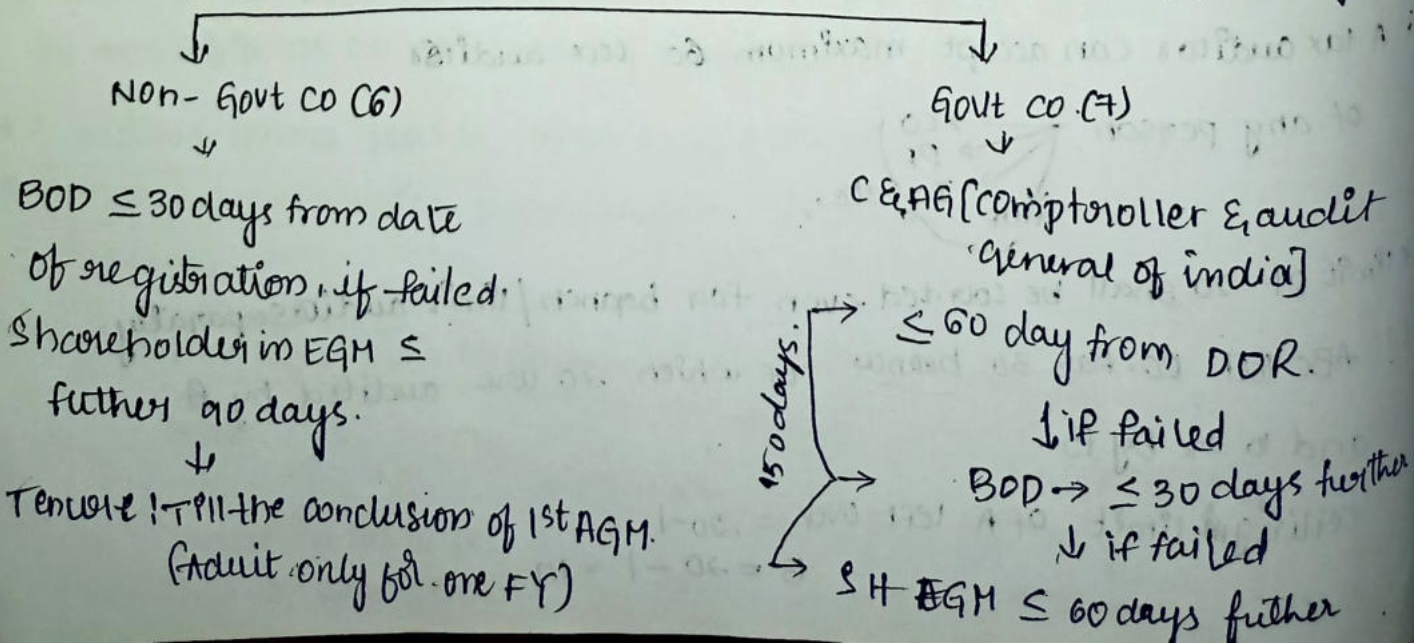 Non-Govt CO (6)
BOD ≤ 30 days from date
of registration, if failed.
Shareholder in EGM ≤
futher 90 days.
Tenure : Till the conclusion of 1st AGM.
(Aduit only for one FY)
Govt co. (7)
C & AG [comptoroller & audit
general of india]
≤ 60 day from DOR.
↓ if failed
BOD → ≤ 30 days further
↓ if failed
SH EGM ≤ 60 days futher
150 days.